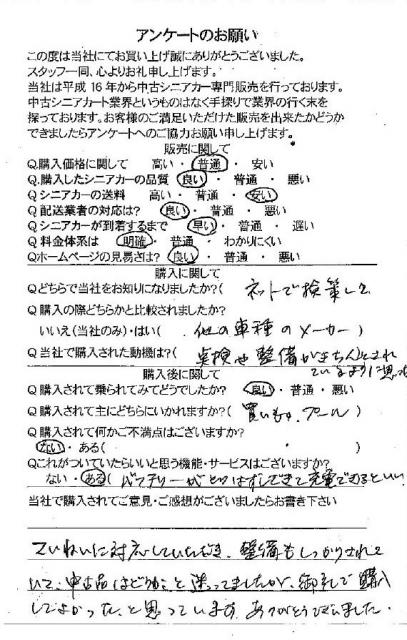 アンケートのお願い
この度は当社にてお買い上げ誠にありがとうございました。
スタッフ一同、心よりお礼申し上げます。
当社は平成16年から中古シニアカー専門販売を行っております。
中古シニアカート業界というものはなく手探りで業界の行く末を
探っております。お客様のご満足いただけた販売を出来たかどうか
できましたらアンケートへのご協力お願い申し上げます。
販売に関して
Q.購入価格に関して 高い・普通・安い
Q.購入したシニアカーの品質 良い・普通・悪い
Q シニアカーの送料 高い・普通・安い
Q 配送業者の対応は? 良い・普通・悪い
Q シニアカーが到着するまで 早い・普通・遅い
Q 料金体系は 明確・普通・わかりにくい
Qホームページの見易さは? 良い・普通・悪い
購入に関して
Qどちらで当社をお知りになりましたか?( ネットで検策した
Q購入の際どちらかと比較されましたか?
いいえ(当社のみ)・はい( 他の車種のメーカー )
Q 当社で購入された動機は?( 車検や整備がきちんとされ
ているように思った
購入後に関して
Q 購入されて乗られてみてどうでしたか? 良い・普通・悪い
Q 購入されて主にどちらにいかれますか?( 買いもの、プール )
Q 購入されて何かご不満点はございますか?
ない・ある( )
Qこれがついていたらいいと思う機能・サービスはございますか?
ない・ある( バッテリーがとりはずしできて充電できるといい
当社で購入されてご意見・ご感想がございましたらお書き下さい
ていねいに対応していただき、整備もしっかりされて
いて、中古品はどうかと迷ってましたが、御社で購入
してよかったと思っています。ありがとうございました。